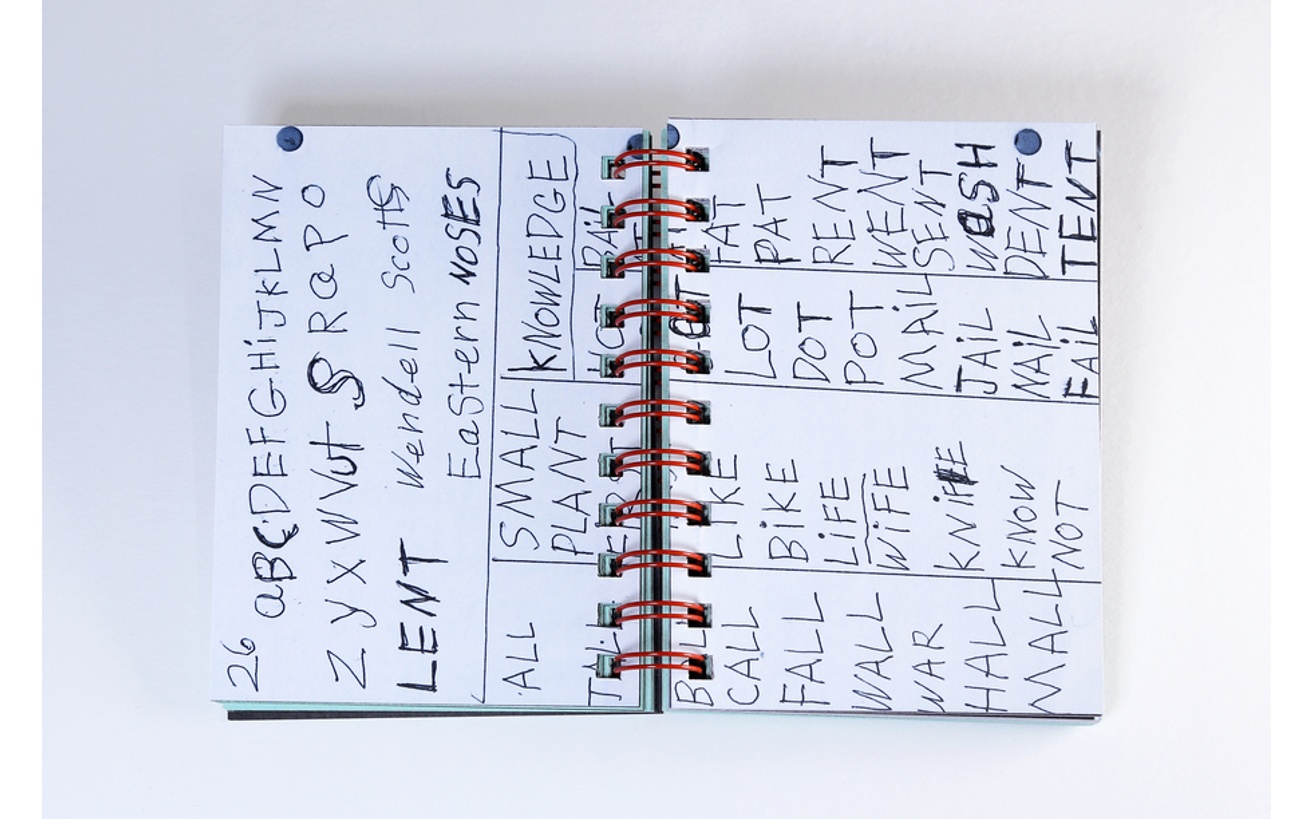 26 aBCDEFGHiJKLMN
Z y x W V U t S R Q P O
LENT Wendell Scotts
EaStern NOSES
ALL
TALL
BALL
CALL
FALL
WALL
WAR
HALL
MALL
SMALL
PLANT
LIKE
BiKE
LiFE
WiFE
KNiFE
KNOW
NOT
KNOWLEDGE
LOT
DOT
POT
MAiL
JAiL
NAiL
FAiL
FAT
PAT
RENT
WENT
SENT
WaSH
DENT
TENT